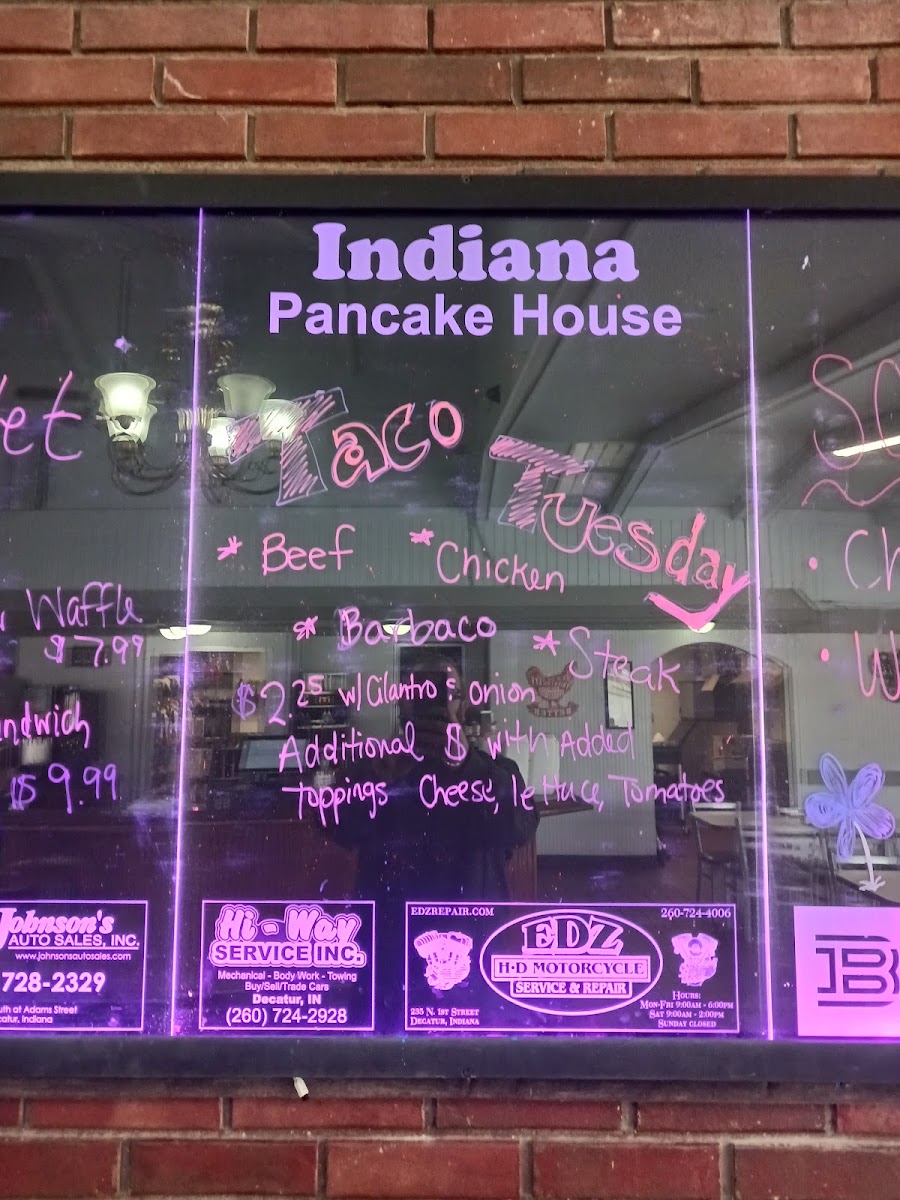 Indiana
Pancake House
Taco
Tuesday
* Beef * Chicken
* Barbaco * Steak
$2.25 w/Cilantro & onion
Additional $ with Added
toppings Cheese, lettuce, Tomatoes
Waffle
$7.99
$9.99
Johnson's
AUTO SALES, INC.
www.johnsonsautosales.com
728-2329
at Adams Street
Indiana
Hi-Way
SERVICE INC.
Mechanical - Body Work - Towing
Buy/Sell/Trade Cars
Decatur, IN
(260) 724-2928
EDZREPAIR.COM
260-724-4006
EDZ
H-D MOTORCYCLE
SERVICE & REPAIR
235 N. 1ST STREET
DECATUR, INDIANA
HOURS:
MON-FRI 9:00AM - 6:00PM
SAT 9:00AM - 2:00PM
SUNDAY CLOSED